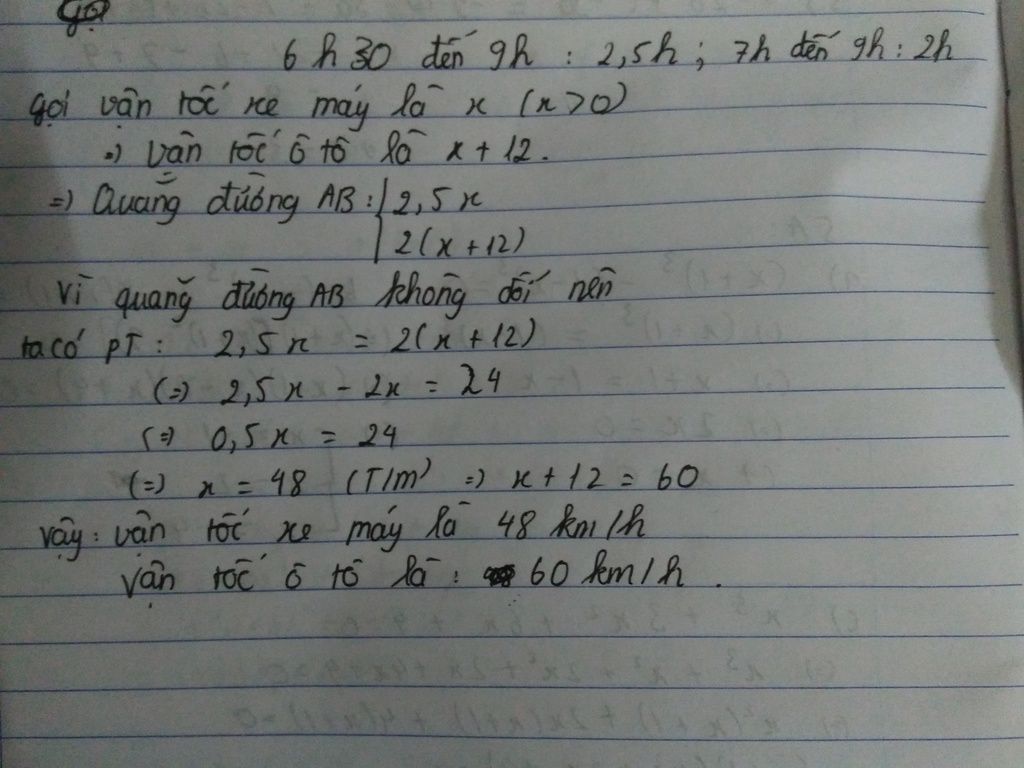 6h30 đến 9h : 2,5h ; 7h đến 9h : 2h
gọi vận tốc xe máy là x (x>0)
=> vận tốc ô tô là x + 12.
=> Quãng đường AB : { 2,5x
2(x + 12)
Vì quãng đường AB không đổi nên
ta có PT : 2,5x = 2(x + 12)
(=) 2,5x - 2x = 24
(=) 0,5x = 24
(=) x = 48 (T/m) => x + 12 = 60
Vậy : vận tốc xe máy là 48 km/h
Vận tốc ô tô là : 60 km/h .